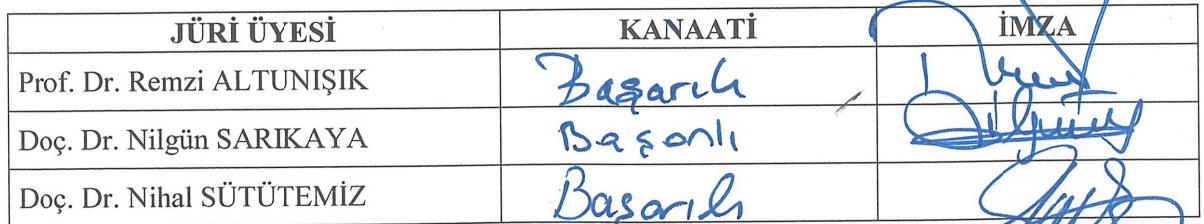 JÜRİ ÜYESİ KANAATİ İMZA
Prof. Dr. Remzi ALTUNIŞIK Başarılı
Doç. Dr. Nilgün SARIKAYA Başarılı
Doç. Dr. Nihal SÜTÜTEMİZ Başarılı